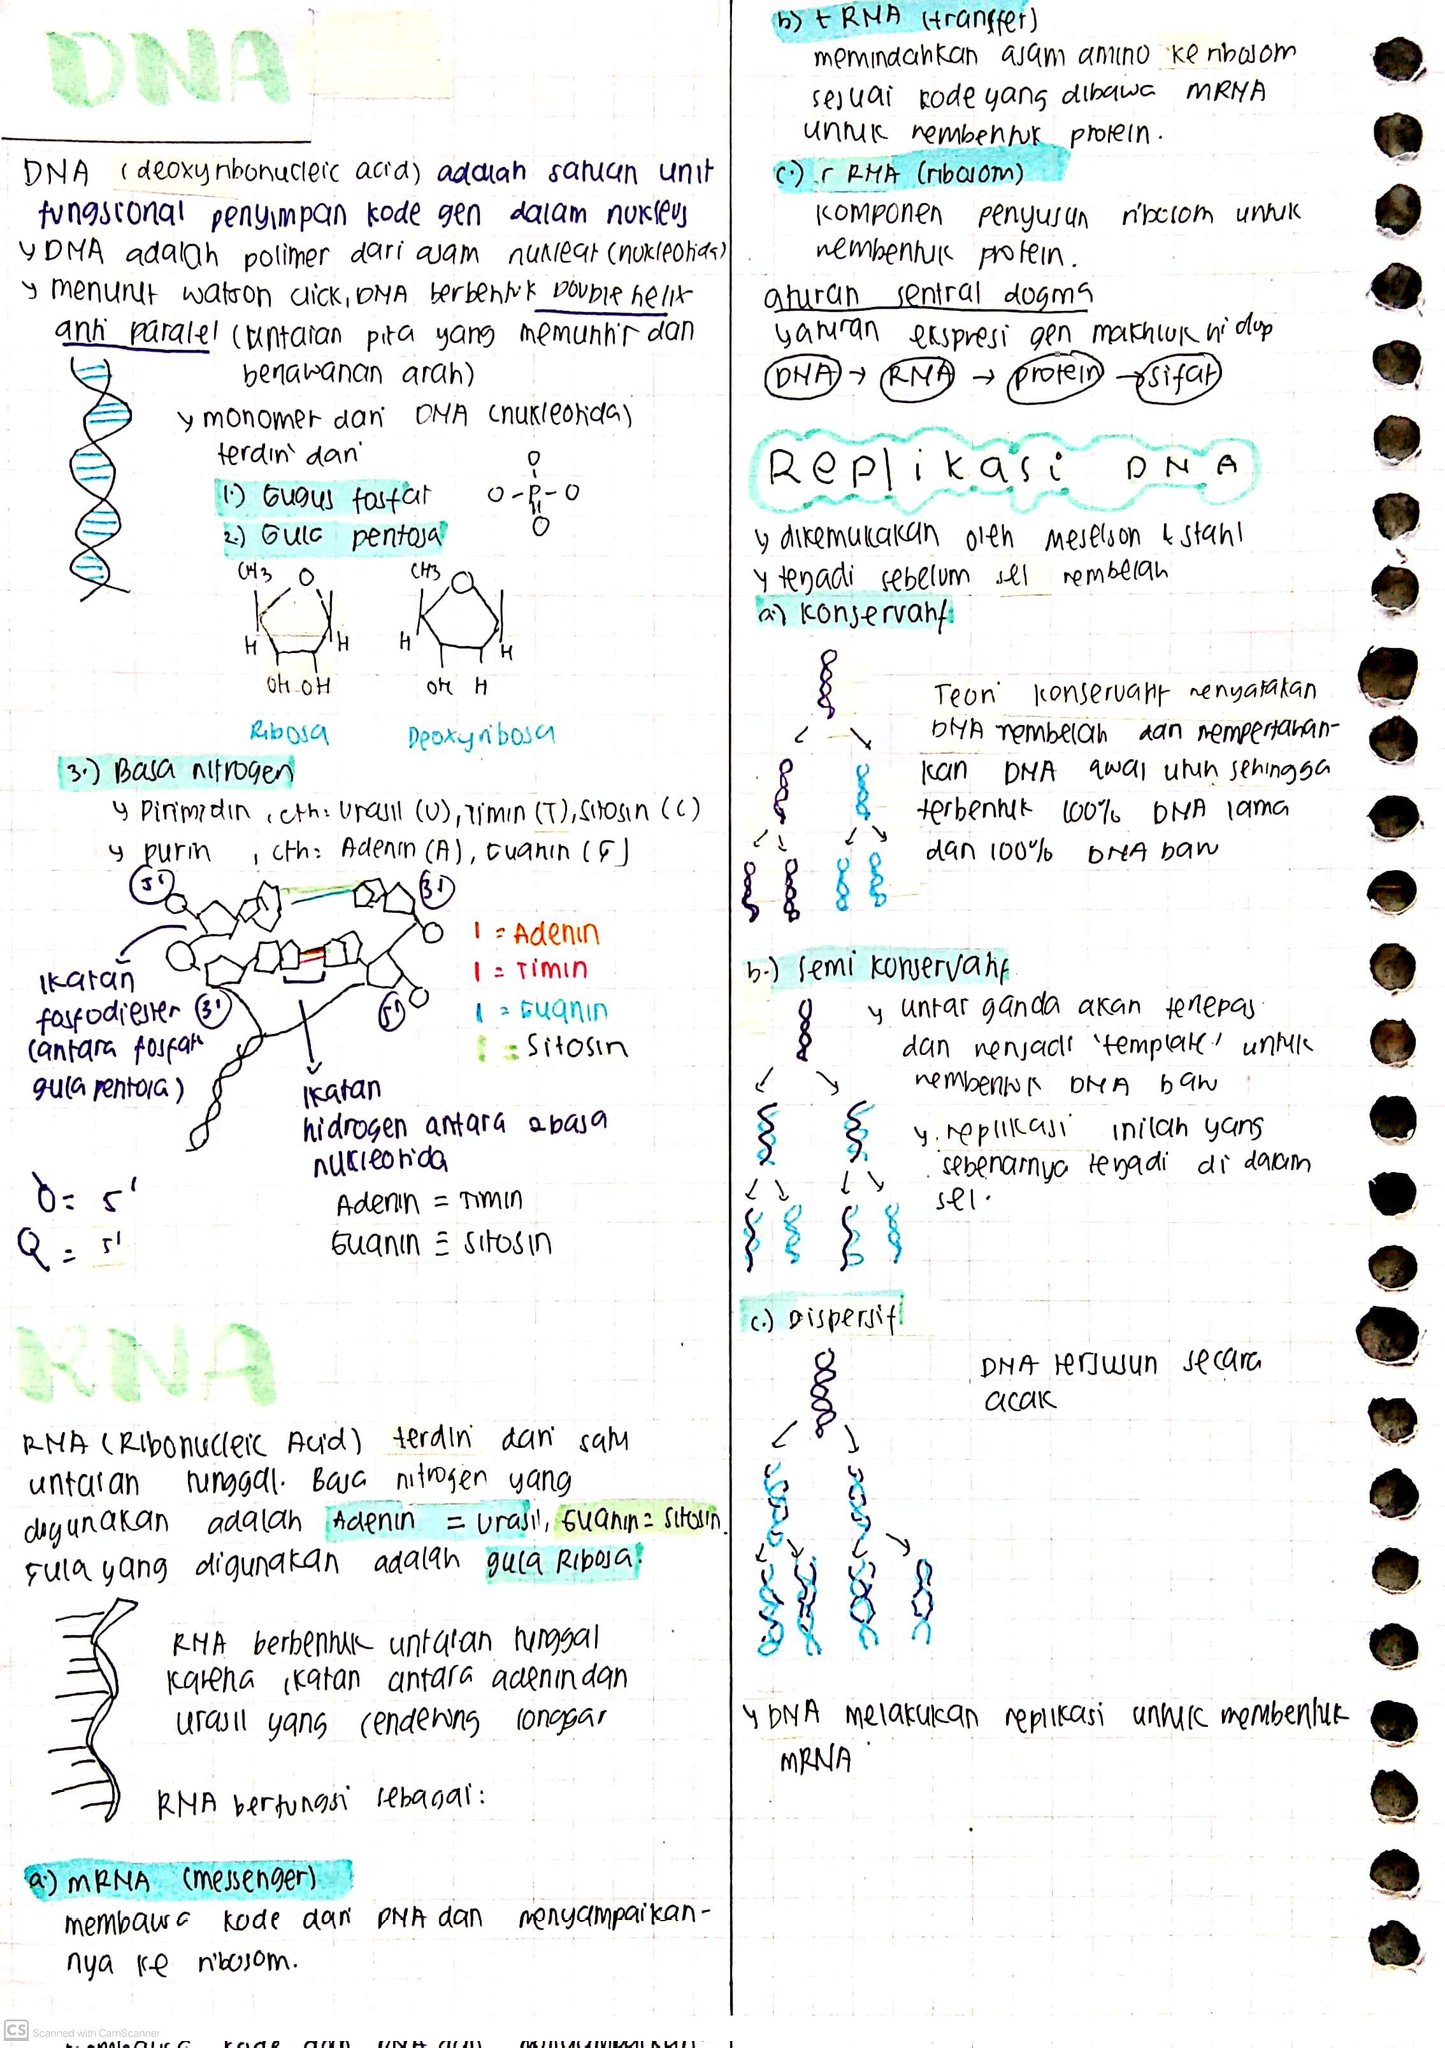 DNA
DNA (deoxyribonucleic acid) adalah satuan unit
fungsional penyimpan kode gen dalam nukleus
DNA adalah polimer dari asam nukleat (nukleotida)
menurut watson click, DNA berbentuk Double helix
anti paralel (untaian pita yang memuntir dan
berlawanan arah)
monomer dari DNA (nukleotida)
terdiri dari
1.) Gugus fosfat
O
O-P-O
O
2.) Gula pentosa
CH3 O
CH3 O
H H
H H
OH OH
OH H
Ribosa
Deoxyribosa
3.) Basa nitrogen
Pirimidin, cth: Urasil (U), Timin (T), Sitosin (C)
purin, cth: Adenin (A), Guanin (G)
5'
3'
1 = Adenin
1 = Timin
1 = Guanin
1 = Sitosin
3'
5'
Ikatan
fosfodiester
(antara fosfat
gula pentosa)
Ikatan
hidrogen antara 2 basa
nukleotida
Adenin = Timin
Guanin ≡ Sitosin
= 5'
= 5'
RNA
RNA (Ribonucleic Acid) terdiri dari satu
untaian tunggal. Basa nitrogen yang
digunakan adalah Adenin = Urasil, Guanin = Sitosin.
Gula yang digunakan adalah gula Ribosa.
RNA berbentuk untaian tunggal
karena ikatan antara adenin dan
urasil yang cenderung longgar
RNA berfungsi sebagai:
a.) mRNA (messenger)
membawa kode dari DNA dan menyampaikan-
nya ke ribosom.
b) tRNA (transfer)
memindahkan asam amino ke ribosom
sesuai kode yang dibawa mRNA
untuk membentuk protein.
c.) rRNA (ribosom)
komponen penyusun ribosom untuk
membentuk protein.
aturan sentral dogma
aturan ekspresi gen makhluk hidup
DNA → RNA → protein → sifat
Replikasi DNA
dikemukakan oleh Meselson & stahl
terjadi sebelum sel membelah
a.) Konservatif
Teori konservatif menyatakan
DNA membelah dan mempertahan-
kan DNA awal utuh sehingga
terbentuk 100% DNA lama
dan 100% DNA baru
b.) Semi konservatif
untai ganda akan terlepas
dan menjadi 'template' untuk
membentuk DNA baru
replikasi inilah yang
sebenarnya terjadi di dalam
sel.
c.) Dispersif
DNA tersusun secara
acak
DNA melakukan replikasi untuk membentuk
mRNA
CS Scanned with CamScanner